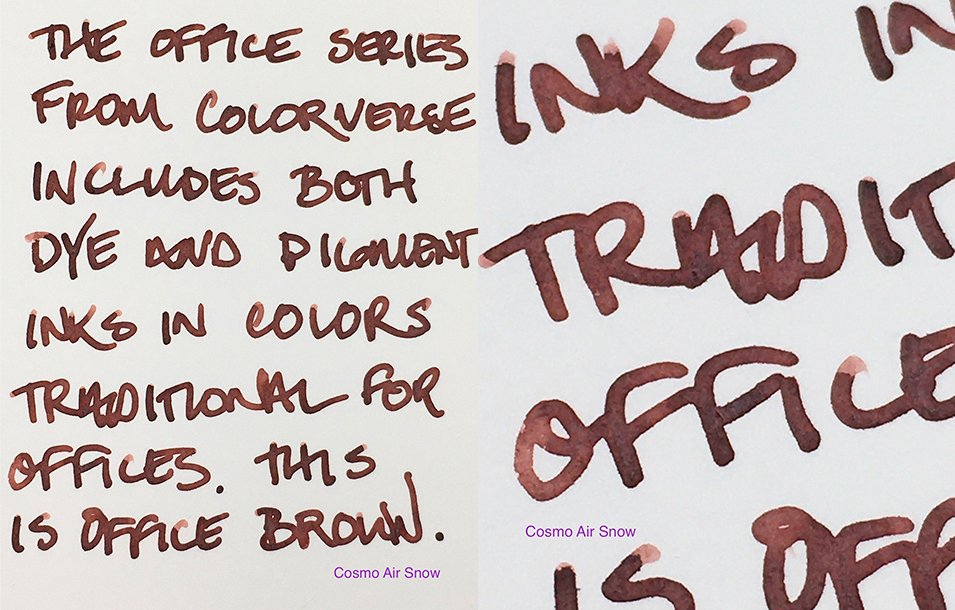 THE OFFICE SERIES
FROM COLORVERSE
INCLUDES BOTH
DYE AND PIGMENT
INKS IN COLORS
TRADITIONAL FOR
OFFICES. THIS
IS OFFICE BROWN.
Cosmo Air Snow
INKS IN
TRADIT
OFFICE
Cosmo Air Snow
IS OFF